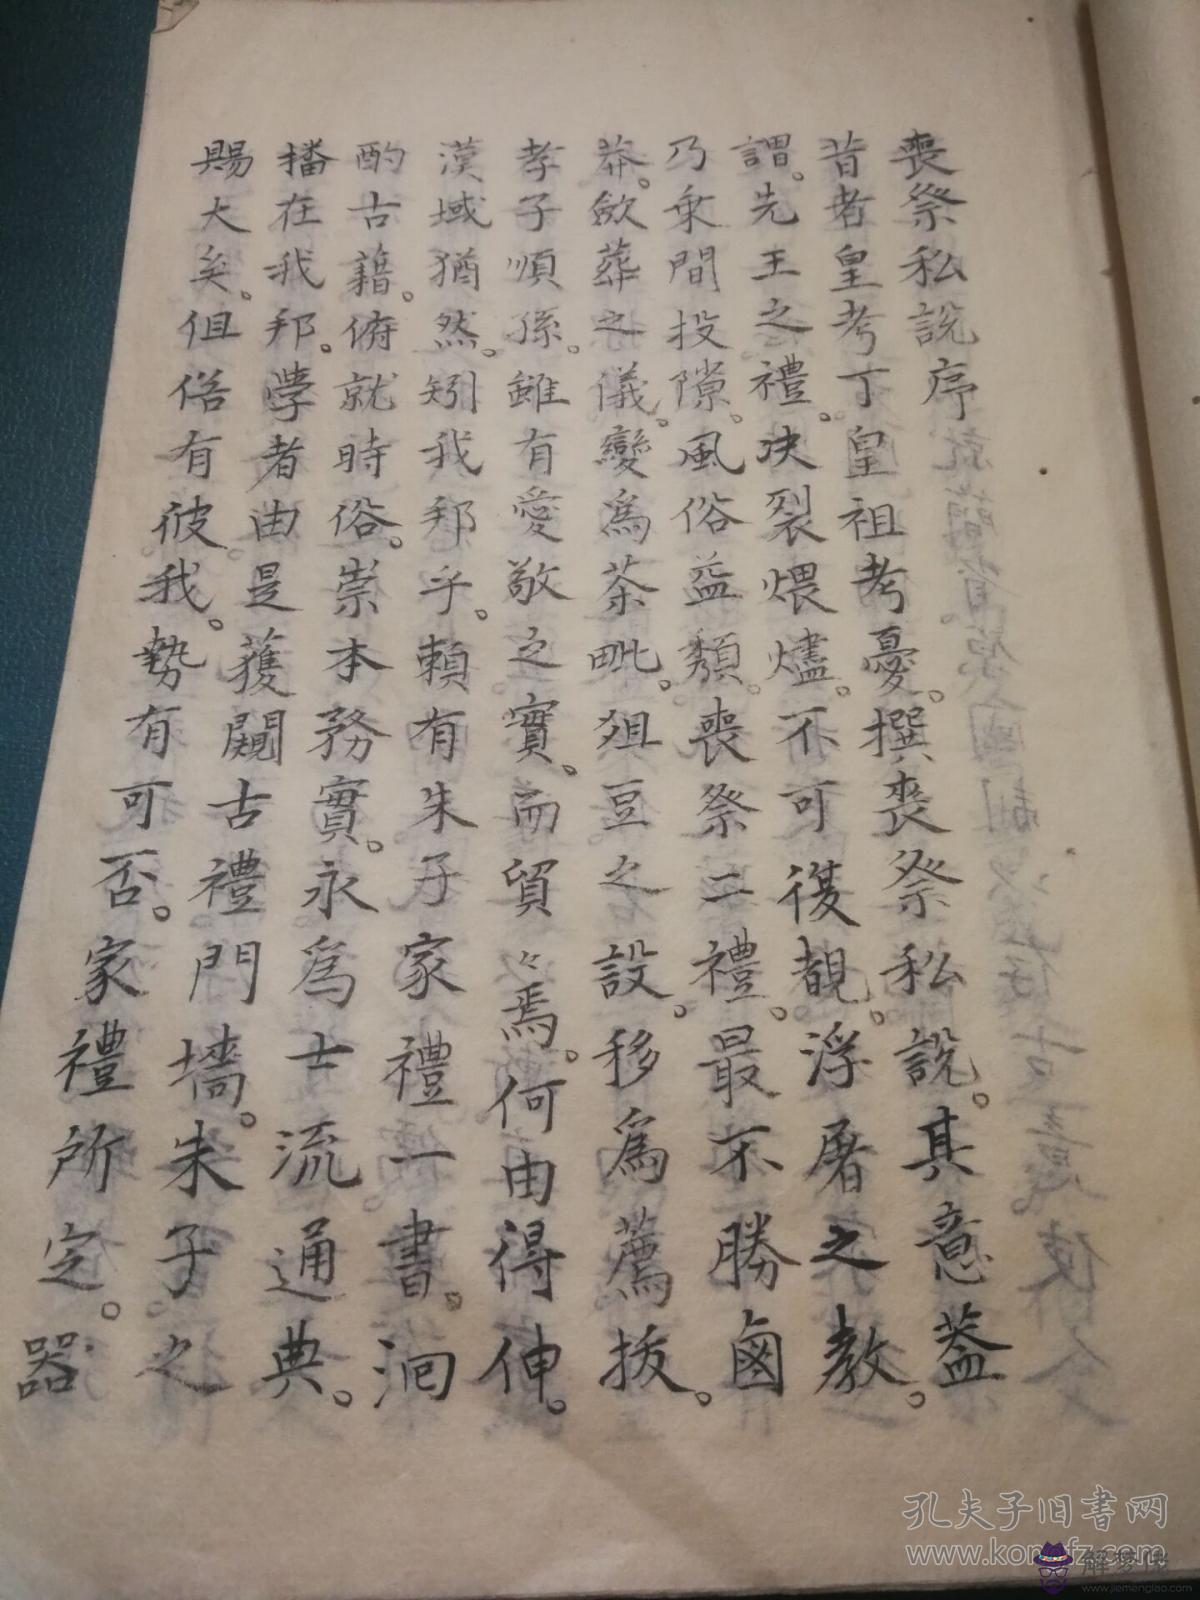 喪祭私說序
昔者皇考丁皇祖考憂。撰喪祭私說。其意蓋
謂。先王之禮。決裂煨燼。不可復覩。浮屠之教。
乃乘間投隙。風俗益頹。喪祭二禮。最不勝鹵
莽。斂葬之儀。變爲茶毗。俎豆之設。移爲薦拔。
孝子順孫。雖有愛敬之實。而貿々焉。何由得伸。
漢域猶然。矧我邦乎。賴有朱子家禮一書。洄
酌古籍。俯就時俗。崇本務實。永爲士流通典。
播在我邦。學者由是獲闚古禮門墻。朱子之
賜大矣。但俗有彼我。勢有可否。家禮所定。器
孔夫子旧書网
www.kongfz.com
解夢佬
www.jiemenglao.com